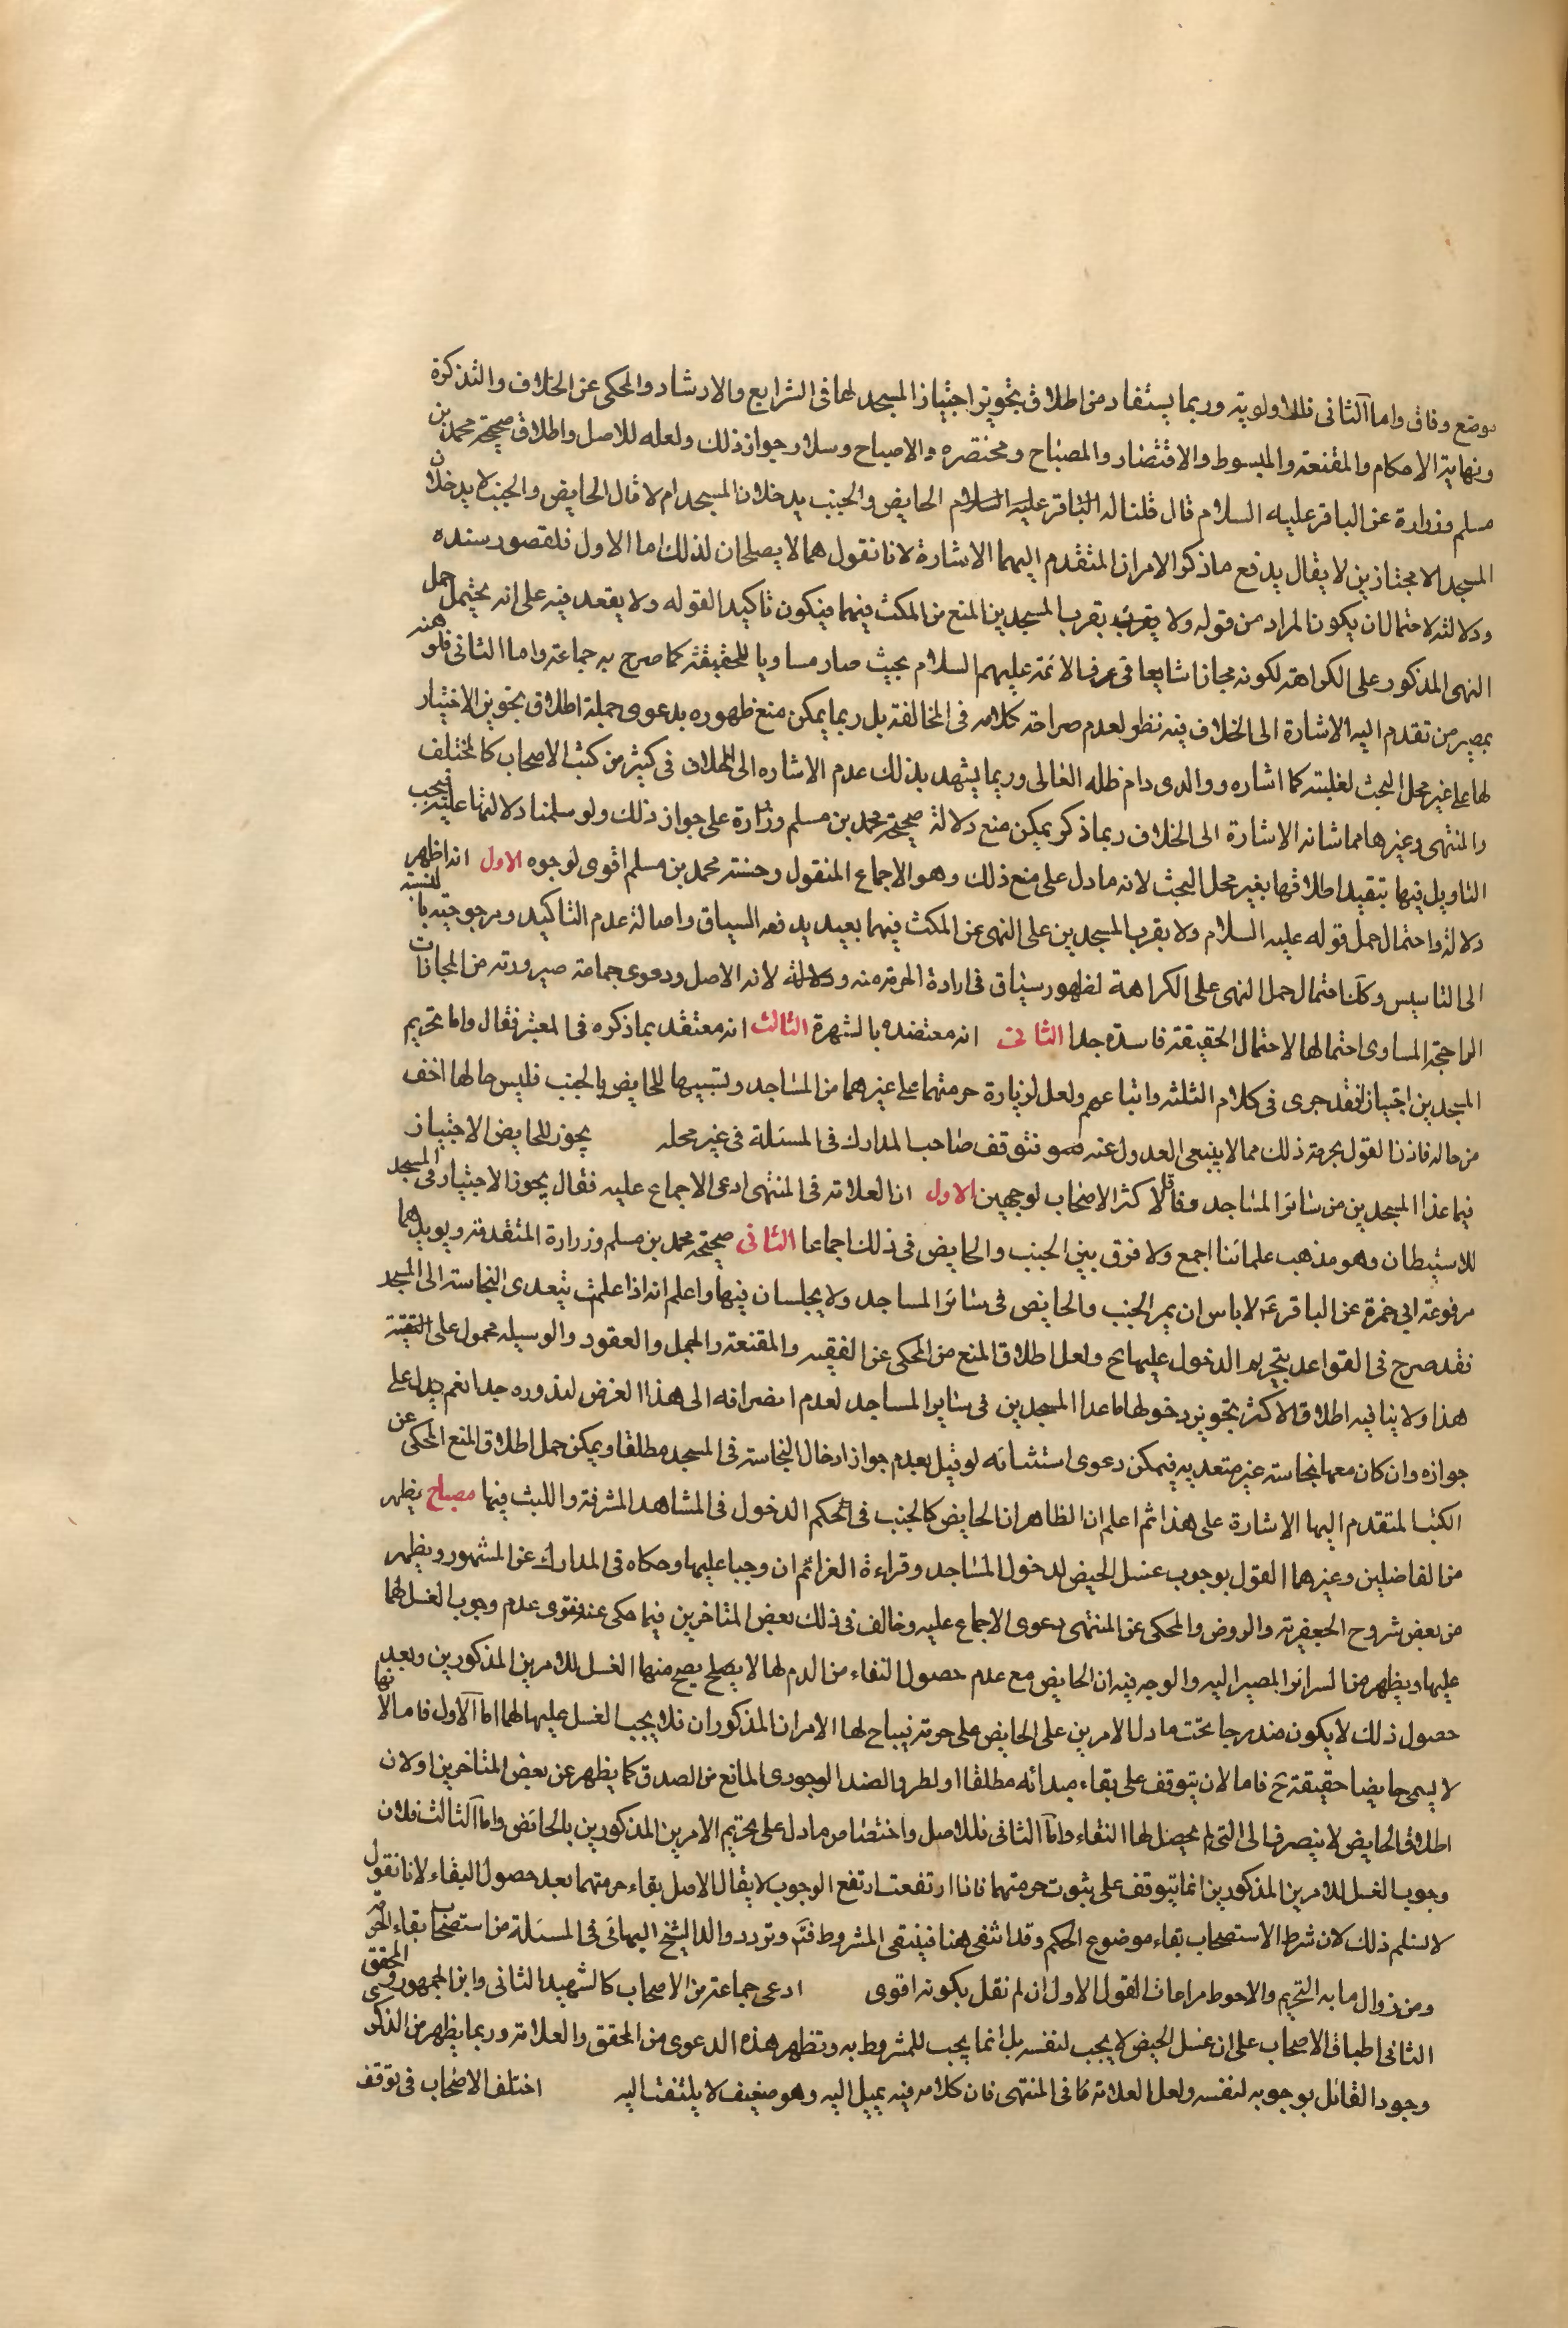 موضع وفاق واما الثانى فللاولوية وربما يستفاد من اطلاق تجويز اجتياز المسجد لها فى الشرايع والارشاد والمحكى عن الخلاف والتذكرة
ونهاية الاحكام والمقنعة والمبسوط والاقتصار والمصباح ومختصره والاصباح وسلار جواز ذلك ولعله للاصل واطلاق صحيحة محمد بن
مسلم وزرارة عن الباقر عليه السلام قال قلنا له الحايض والجنب يدخلان المسجد ام لا قال الحايض والجنب لا يدخلان
المسجد الا مجتازين لا يقال يدفع ما ذكر الامران المتقدم اليهما الاشارة لانا نقول هما لا يصلحان لذلك اما الاول فلقصور سنده
ودلالته لاحتمال ان يكون المراد من قوله ولا يقرب المسجدين المنع من المكث فيهما فيكون تاكيدا لقوله ولا يقعد فيه على انه يحتمل حمل
النهى المذكور على الكراهة لكونه مجازا شايعا فى عرف الائمة عليهم السلام بحيث صار مساويا للحقيقة كما صرح به جماعة واما الثانى فلوهنه
بمصير من تقدم اليه الاشارة الى الخلاف فيه نظر لعدم صراحة كلامه فى المخالفة بل ربما يمكن منع ظهوره بدعوى حملة اطلاق تجويز الاختيار
لها على غير محل البحث لغلبته كما اشاره ووالدى دام ظله العالى وربما يشهد بذلك عدم الاشاره الى الخلاف فى كثير من كتب الاصحاب كالمختلف
والمنتهى وغيرها مما شانه الاشارة الى الخلاف ربما ذكر يمكن منع دلالة صحيحة محمد بن مسلم وزرارة على جواز ذلك ولو سلمنا دلالتها عليه فيجب
التاويل فيها بتقييد اطلاقها بغير محل البحث لانه ما دل على منع ذلك وهو الاجماع المنقول وحسنة محمد بن مسلم اقوى لوجوه الاول انه اظهر
دلالة واحتمال حمل قوله عليه السلام ولا يقرب المسجدين على النهى عن المكث فيهما بعيد يدفعه السياق واصالة عدم التاكيد ومرجوحيته بالنسبة
الى التاسيس وكذا احتمال حمل النهى على الكراهة لظهور سياق فى ارادة الحرمة منه ودلالته لانه الاصل ودعوى جماعة صيرورته من المجازات
الراجحة المساوى احتمالها لاحتمال الحقيقة فاسدة جدا الثانى انه معتضده بالشهرة الثالث انه معتقد بما ذكره فى المعتبر فقال واما تحريم
المسجدين اجتيازا فقد جرى فى كلام الثلثه واتباعهم ولعل لزيادة حرمتهما على غيرهما من المساجد وتشبيها للحايض بالجنب فليس حالها اخف
من حاله فاذن القول بحرمة ذلك مما لا ينبغى العدول عنه فتوقف صاحب المدارك فى المسئلة فى غير محله يجوز للحايض الاجتياز
فيما عدا المسجدين من سائر المساجد وفاقا لاكثر الاصحاب لوجهين الاول ان العلامة فى المنتهى ادعى الاجماع عليه فقال يجوز الاجتياز فى المسجد
للاستيطان وهو مذهب علمائنا اجمع ولا فرق بين الجنب والحايض فى ذلك اجماعا الثانى صحيحة محمد بن مسلم وزرارة المتقدمة ويويدهما
مرفوعة ابي حمزة عن الباقر ع لا باس ان يمر الجنب والحايض فى سائر المساجد ولا يجلسان فيها واعلم انه اذا علمت بتعدى النجاسة الى المسجد
فقد صرح فى القواعد بتحريم الدخول عليها ح ولعل اطلاق المنع من المحكى عن الفقيه والمقنعة والجمل والعقود والوسيله محمول على التقية
هذا ولا ينافيه اطلاق الاكثر بتجويز دخولها ما عدا المسجدين فى سائر المساجد لعدم انصرافه الى هذا الغرض لندوره جدا نعم يدل على
جوازه وان كان معها نجاسة غير متعديه فيمكن دعوى استثنائه لو قيل بعدم جواز ادخال النجاسة فى المسجد مطلقا ويمكن حمل اطلاق المنع المحكى عن
الكتب المتقدم اليها الاشارة على هذا ثم اعلم ان الظاهر ان الحايض كالجنب فى الحكم الدخول فى المشاهد المشرفة واللبث فيها مصباح يظهر
من الفاضلين وغيرهما القول بوجوب غسل الحيض لدخول المساجد وقراءة العزائم ان وجبا عليها وحكاه فى المدارك عن المشهور ويظهر
من بعض شروح الجعفرية والروض والمحكى عن المنتهى دعوى الاجماع عليه وخالف فى ذلك بعض المتاخرين فيما حكى عنه فقوى عدم وجوب الغسل لهما
عليها ويظهر من السرائر المصير اليه والوجه فيه ان الحايض مع عدم حصول النقاء من الدم لها لا يصلح يصح منها الغسل للامرين المذكورين وبعد
حصول ذلك لا يكون مندرجا تحت ما دل الامرين على الحايض على حرمة فيباح لها الامران المذكوران فلا يجب الغسل عليها لهما اما الاول فاما لانها
لا يسمى حايضا حقيقة ح فاما لان يتوقف على بقاء مبدائه مطلقا او لطرو الضد الوجودى المانع من الصدق كما يظهر عن بعض المتاخرين او لان
اطلاق الحايض لا ينصرف الى التى لم يحصل لها النقاء واما الثانى فللاصل واختصاص ما دل على تحريم الامرين المذكورين بالحائض واما الثالث فلان
وجوب الغسل للامرين المذكورين انما يتوقف على ثبوت حرمتهما فاذا ارتفعت ارتفع الوجوب لا يقال الاصل بقاء حرمتهما بعد حصول النقاء لانا نقول
لا نسلم ذلك لان شرط الاستصحاب بقاء موضوع الحكم وقد انتفى هنا فينتفى المشروط فتم وتردد والد الشيخ البهائى فى المسئلة من استصحاب بقاء الحرمة
ومن زوال ما به التحريم والاحوط مراعات القول الاول ان لم نقل بكونه اقوى ادعى جماعة من الاصحاب كالشهيد الثانى وابن الجمهور والمحقق
الثانى اطباق الاصحاب على ان غسل الحيض لا يجب لنفسه بل انما يجب للمشروط به وتظهر هذه الدعوى من المحقق والعلامة وربما يظهر من الذكرى
وجود القائل بوجوبه لنفسه ولعل العلامة فى المنتهى فان كلامه فيه يميل اليه وهو ضعيف لا يلتفت اليه اختلف الاصحاب فى توقف